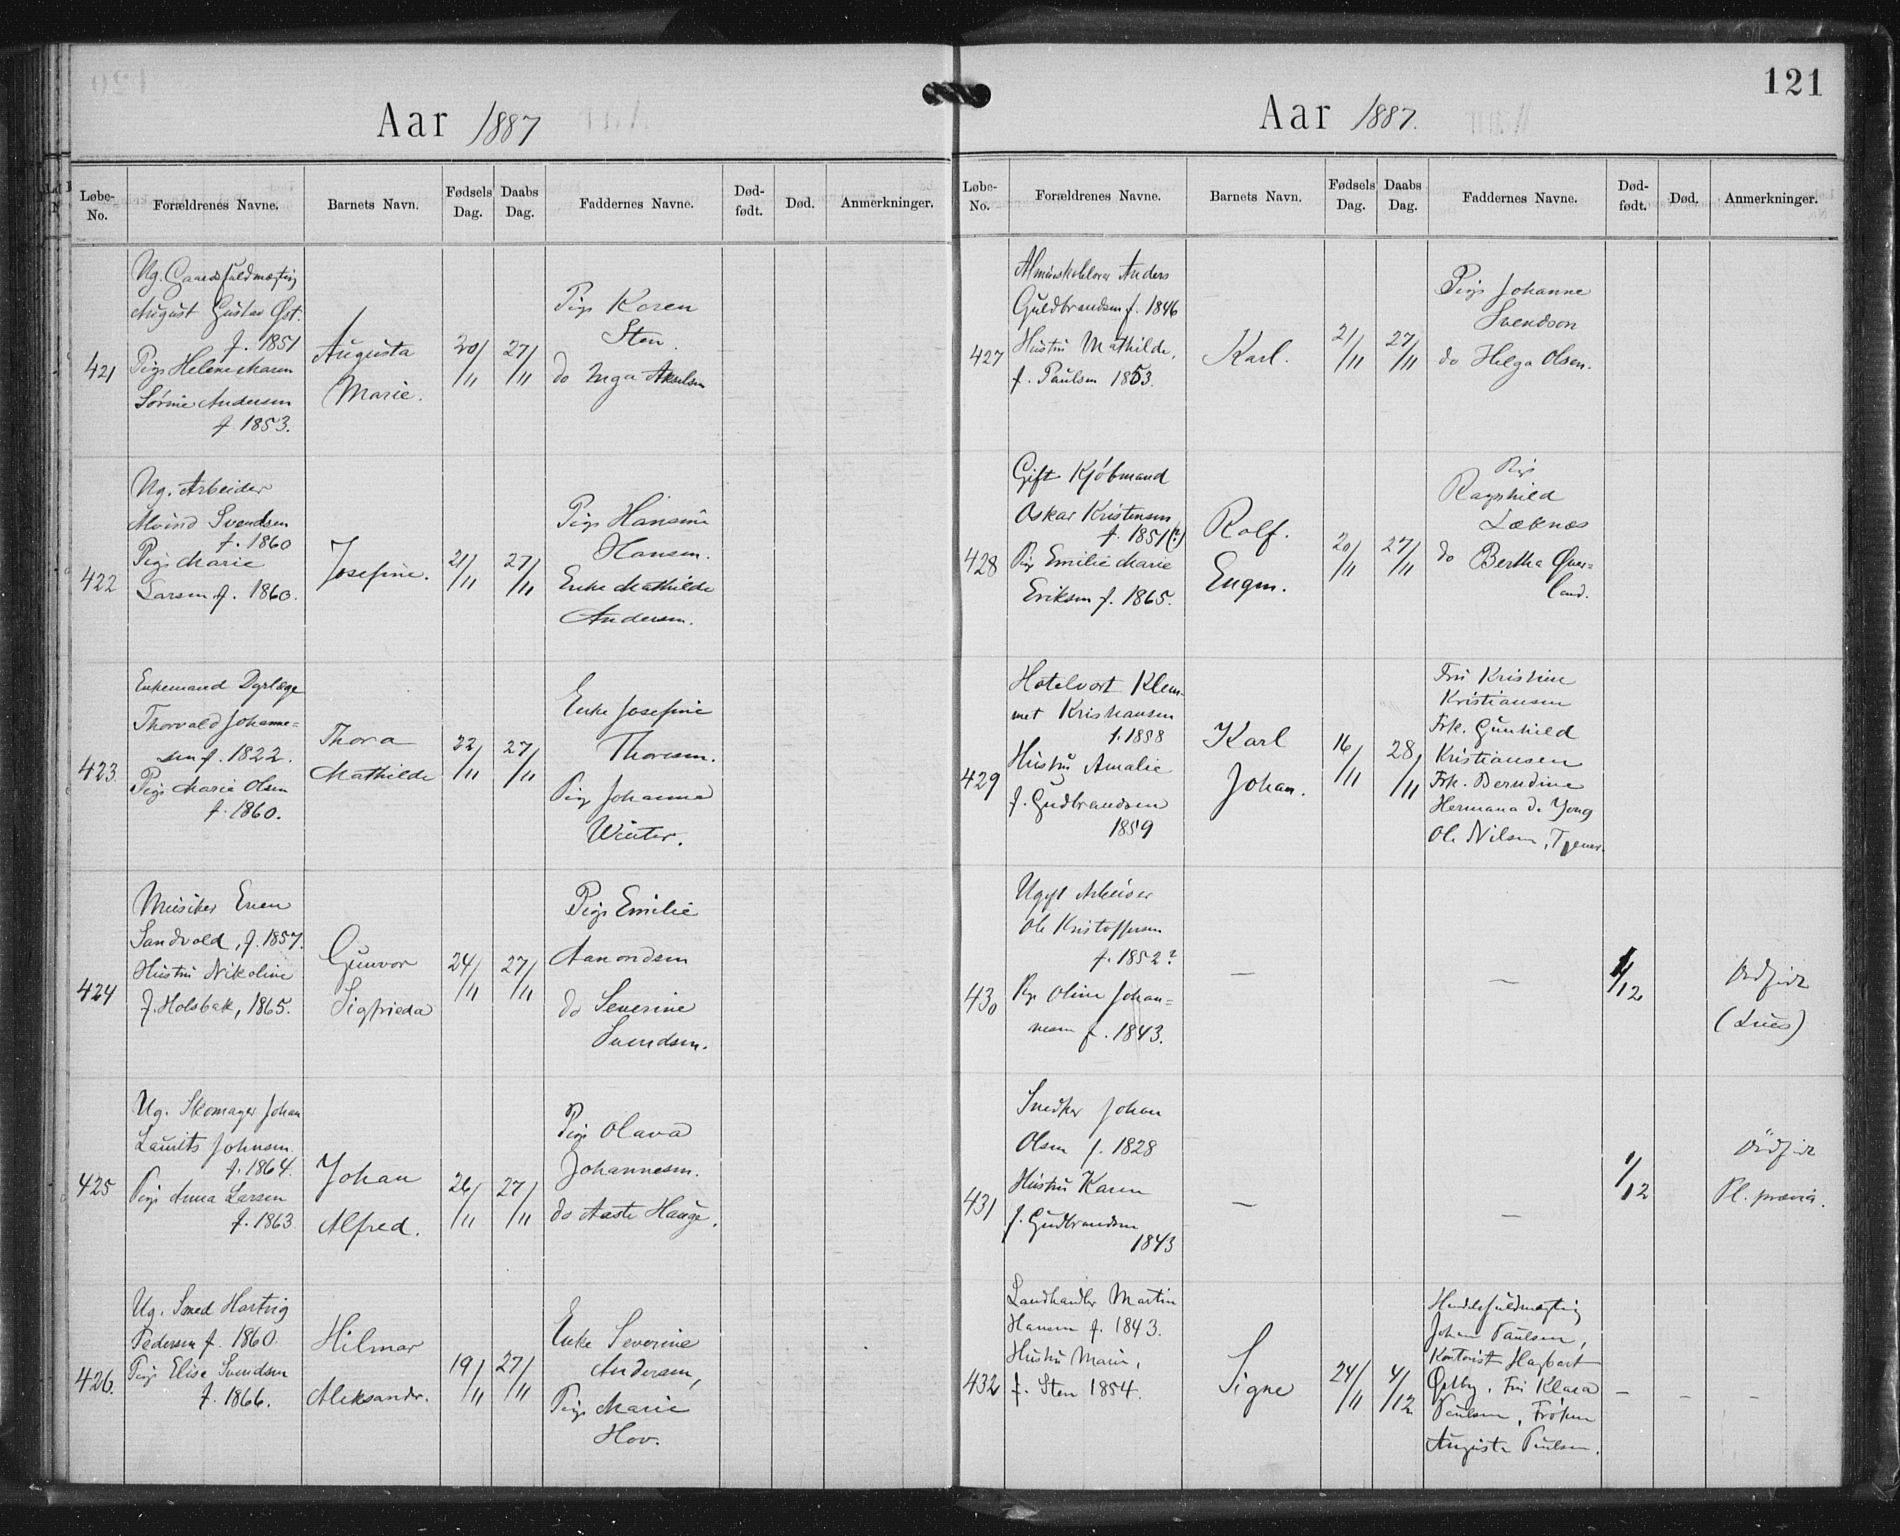 Aar 1887
Løbe-No. Forældrenes Navne. Barnets Navn. Fødsels Dag. Daabs Dag. Faddernes Navne. Død-født. Død. Anmerkninger.
421
Ug. Gaardsfuldmægtig
August Gustav Øst.
f. 1851
Pige Helene Maren
Sørine Andersen
f. 1853.
Augusta
Marie.
20/11
27/11
Pige Karen
Sten.
do Inga Akselsen
422
Ug. Arbeider
Alvind Svendsen
f. 1860
Pige Marie
Larsen f. 1860.
Josefine.
21/11
27/11
Pige Hansine
Hansen.
Enke Mathilde
Andersen.
423
Enkemand Dyrlæge
Thorvald Johanne=
sen f. 1822.
Pige Marie Olsen
f. 1860.
Thora
Mathilde
22/11
27/11
Enke Josefine
Thoresen.
Pige Johanna
Winter.
424
Musiker Even
Sandvold, f. 1857.
Hustru Nikoline
f. Holsbak, 1865.
Gunvor
Sigfrieda
24/11
27/11
Pige Emilie
Aanondsen
do Severine
Svendsen.
425
Ug. Skomager Johan
Laurits Johnsen.
f. 1864.
Pige Anna Larsen
f. 1863
Johan
Alfred.
26/11
27/11
Pige Olava
Johannesen.
do Aaste Hauge.
426.
Ug. Smed Hartvig
Pedersen f. 1860.
Pige Elise Svendsen
f. 1866.
Hilmar
Aleksander.
19/11
27/11
Enke Severine
Andersen,
Pige Marie
Hov.
121
Aar 1887.
Løbe-No. Forældrenes Navne. Barnets Navn. Fødsels Dag. Daabs Dag. Faddernes Navne. Død-født. Død. Anmerkninger.
427
Anders
Guldbrandsen f. 1846
Hustru Mathilde,
f. Paulsen 1853.
Karl.
21/11
27/11
Pige Johanne
Svendson
do Helga Olsen.
428
Gift Kjøbmand
Oskar Kristensen
f. 1851(?)
Pige Emilie Marie
Eriksen f. 1865.
Rolf.
Eugen.
20/11
27/11
Pige
Ragnhild
Læknæs
do Bertha Øver=
land.
429
Hotelvært Klem-
met Kristiansen
f. 1858
Hustru Amalie
f. Gudbrandsen
1859
Karl
Johan.
16/11
28/11
Fru Kristine
Kristiansen
Frk. Gunhild
Kristiansen
Frk. Berndine
Hermana de Jong
Ole Nilsen, Tjener.
430
Ugift Arbeider
Ole Kristoffersen
f. 1852?
Pige Oline Johan=
nesen f. 1843.
—
—
1/12
Dødfødt
(Lues)
431
Snedker Johan
Olsen f. 1828
Hustru Karen
f. Gudbrandsen
1843
—
—
1/12
Dødfødt
Pl. prævia.
432
Landhandler Martin
Hansen f. 1843.
Hustru Marie,
f. Sten 1854.
Signe
24/11
4/12
Handelsfuldmægtig
Johan Paulsen,
Kontorist Hagbart
Østby. Fru Klara
Paulsen, Frøken
Augusta Paulsen.
—
—
—